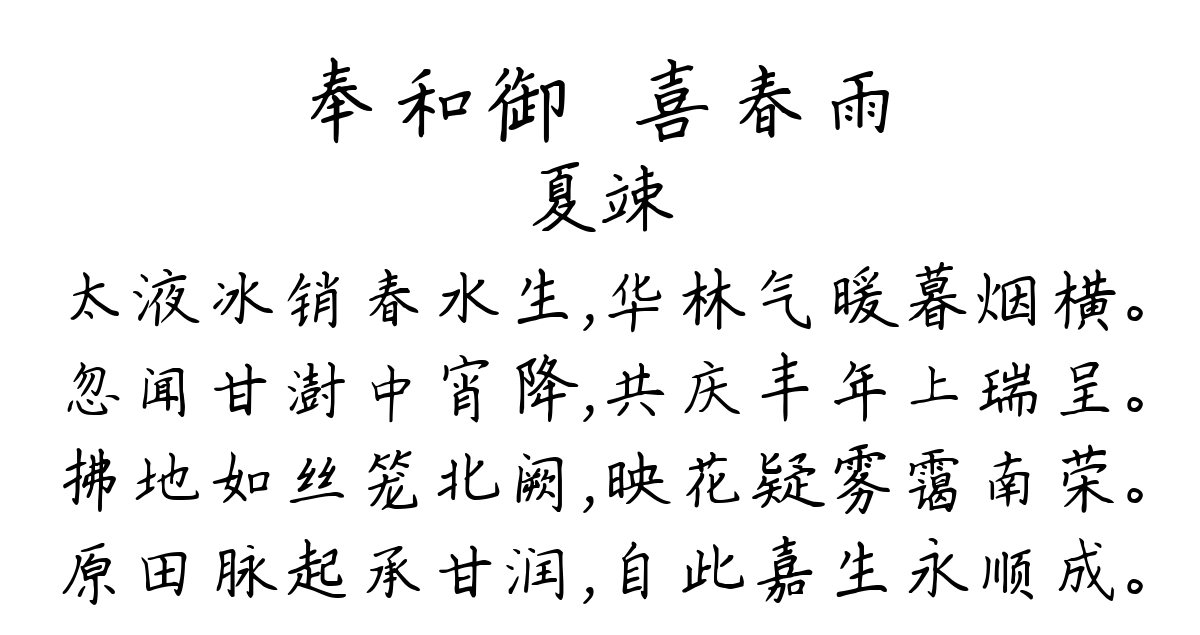 奉和御 喜春雨
夏竦
太液冰销春水生,华林气暖暮烟横。
忽闻甘澍中宵降,共庆丰年上瑞呈。
拂地如丝笼北阙,映花疑雾霭南荣。
原田脉起承甘润,自此嘉生永顺成。